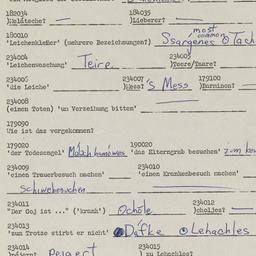 182034 184035
)Kaläтsche? )Lieberer?
180010 most common
'Leichenkleider' (mehrere Bezeichnungen?) Ssargenes
234004 234005
'Leichenwaschung' Teire )Teere/Taare?
234006 234007 179100
'die Leiche' )Mess? 's Mess )Barminon?
234008
(einen Toten) 'um Verzeihung bitten'
179090
Wie ist das vorgekommen?
179020 190020
'der Todesengel' 'das Elterngrab besuchen' zum
234009 234010
'einen Trauerbesuch machen' 'einen Krankenbesuch machen'
Schiwebesuchen
234011 234012
"Der Goj ist ..." ('krank') )choljes?
234013
'zum Trotze stirbt er nicht' Dafke Lehachles
234014 234015
Pejgert )zu Lehachles?